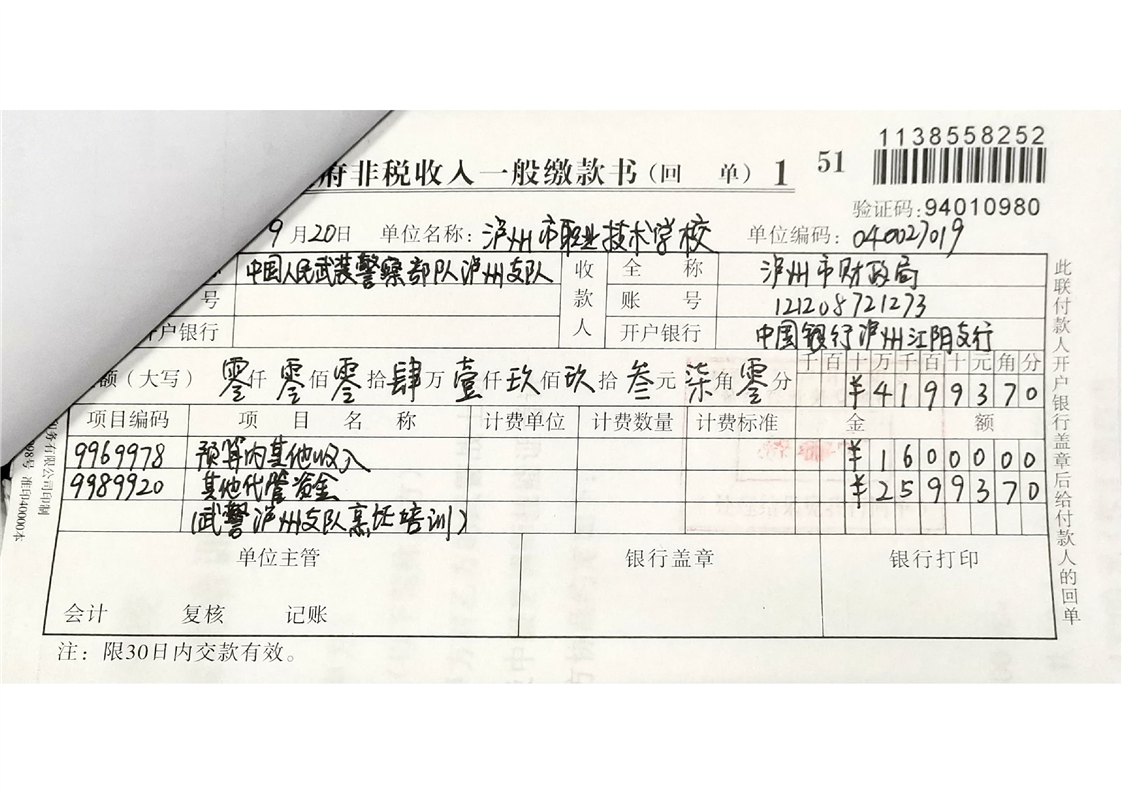 1138558252
府非税收入一般缴款书(回 单) 1 51
验证码:94010980
9月20日 单位名称: 泸州市职业技术学校 单位编码: 040027019
中国人民武装警察部队泸州支队 收款人 全 称 泸州市财政局
号 账 号 121208721273
开户银行 开户银行 中国银行泸州江阳支行
额(大写) 零仟零佰零拾肆万壹仟玖佰玖拾叁元柒角零分 千百十万千百十元角分 ¥4199370
项目编码 项 目 名 称 计费单位 计费数量 计费标准 金 额
9969978 预算内其他收入 ¥1600000
9989920 其他代管资金 ¥2599370
(武警泸州支队烹饪培训)
单位主管 银行盖章 银行打印
会计 复核 记账
注: 限30日内交款有效。
此联付款人开户银行盖章后给付款人的回单
务有限公司印制
98号 准印40000本